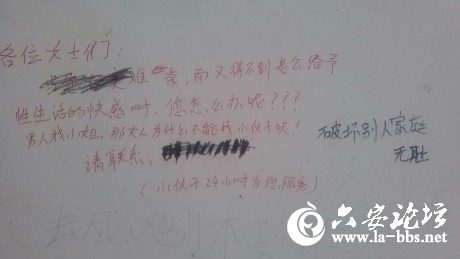 各位女士们：
难 索，而又得不到老公给予
性生活的快感时，您怎么办呢？？？
男人找小姐，那女人为什么不能找小伙子呢！
请联系：
（小伙子24小时为您服务）
破坏别人家庭
无耻
六安论坛
www.la-bbs.net